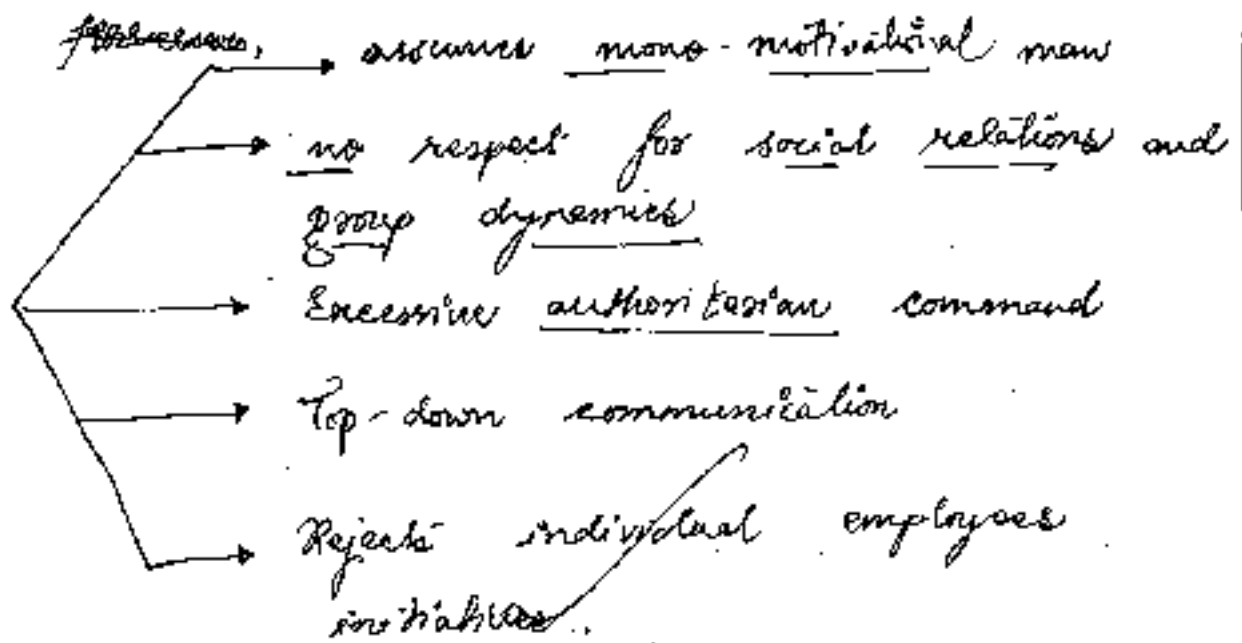 assumes mono-motivational man
no respect for social relations and
group dynamics
Excessive authoritarian command
Top-down communication
Rejects individual employees
initiatives..